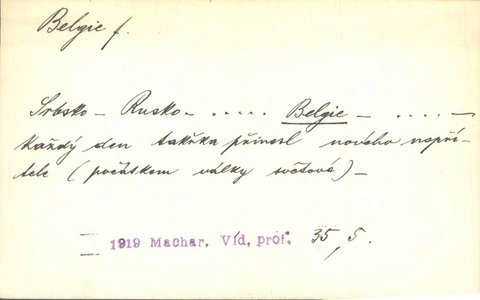 Belgie f.
Srbsko – Rusko – ..... Belgie – ..... –
každý den takřka přinesl nového nepří-
tele (počátkem války světové) –
1919 Machar, Víd. prof. 35, 5.